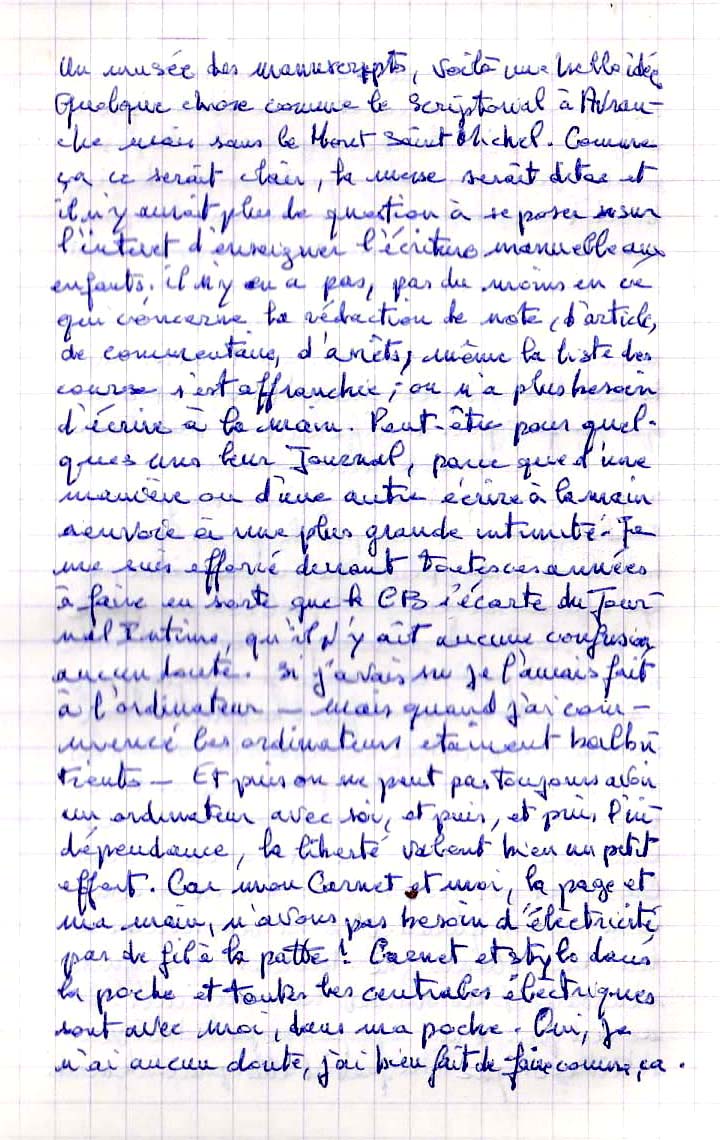 Un musée des manuscrypts, voilà une belle idée
Quelque chose comme le Scriptorial à Avran-
che mais sans le Mont Saint Michel. Comme
ça ce serait clair, la messe serait dites et
il n'y aurait plus de question à se poser sur
l'intéret d'enseigner l'écriture manuelle aux
enfants. il n'y en a pas, pas du moins en ce
qui concerne la rédaction de note, d'article,
de commentaire, d'arrêts, même la liste des
course s'est affranchie, on n'a plus besoin
d'écrire à la main. Peut-être pour quel-
ques uns leur Journal, parce que d'une
manière ou d'une autre écrire à la main
renvoie à une plus grande intimité. Je
me suis efforcé durant toutes ces années
à faire en sorte que le CB s'écarte du Jour-
nal Intime, qu'il n'y ait aucune confusion
aucun doute. Si j'avais su je l'aurais fait
à l'ordinateur – mais quand j'ai com-
mencé les ordinateurs etaient balbu
tients – Et puis on ne peut pas toujours avoir
un ordinateur avec soi, et puis, et puis l'in
dépendance, la liberté valent bien un petit
effort. Car mon Carnet et moi, la page et
ma main, n'avons pas besoin d'électricité
pas de fil à la patte ! Carnet et stylo dans
la poche et toutes les centrales électriques
sont avec moi, dans ma poche. Oui, je
n'ai aucun doute, j'ai bien fait de faire comme ça.